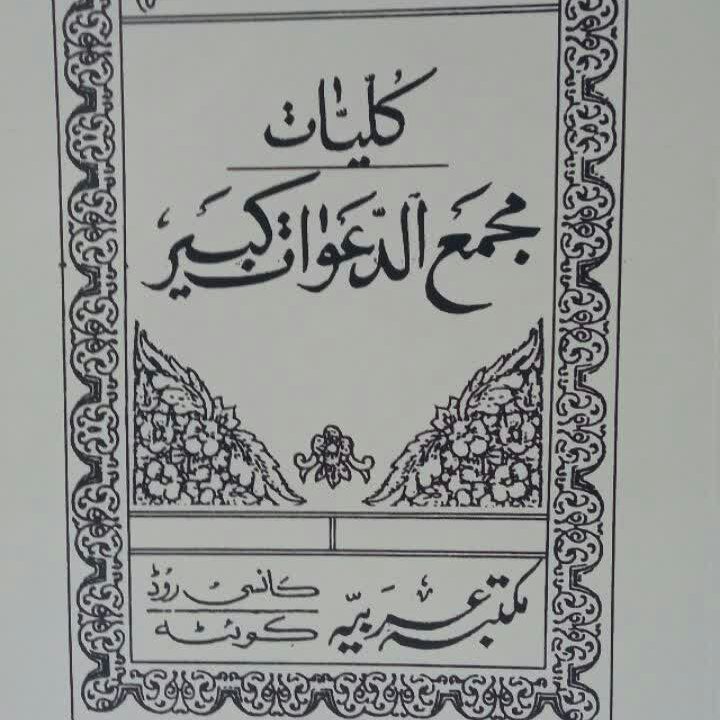 كُلیّات
مجمَع الدّعَوات كبَیر
مکتبہ عَربیّہ
کانسی روڈ
کوئٹہ